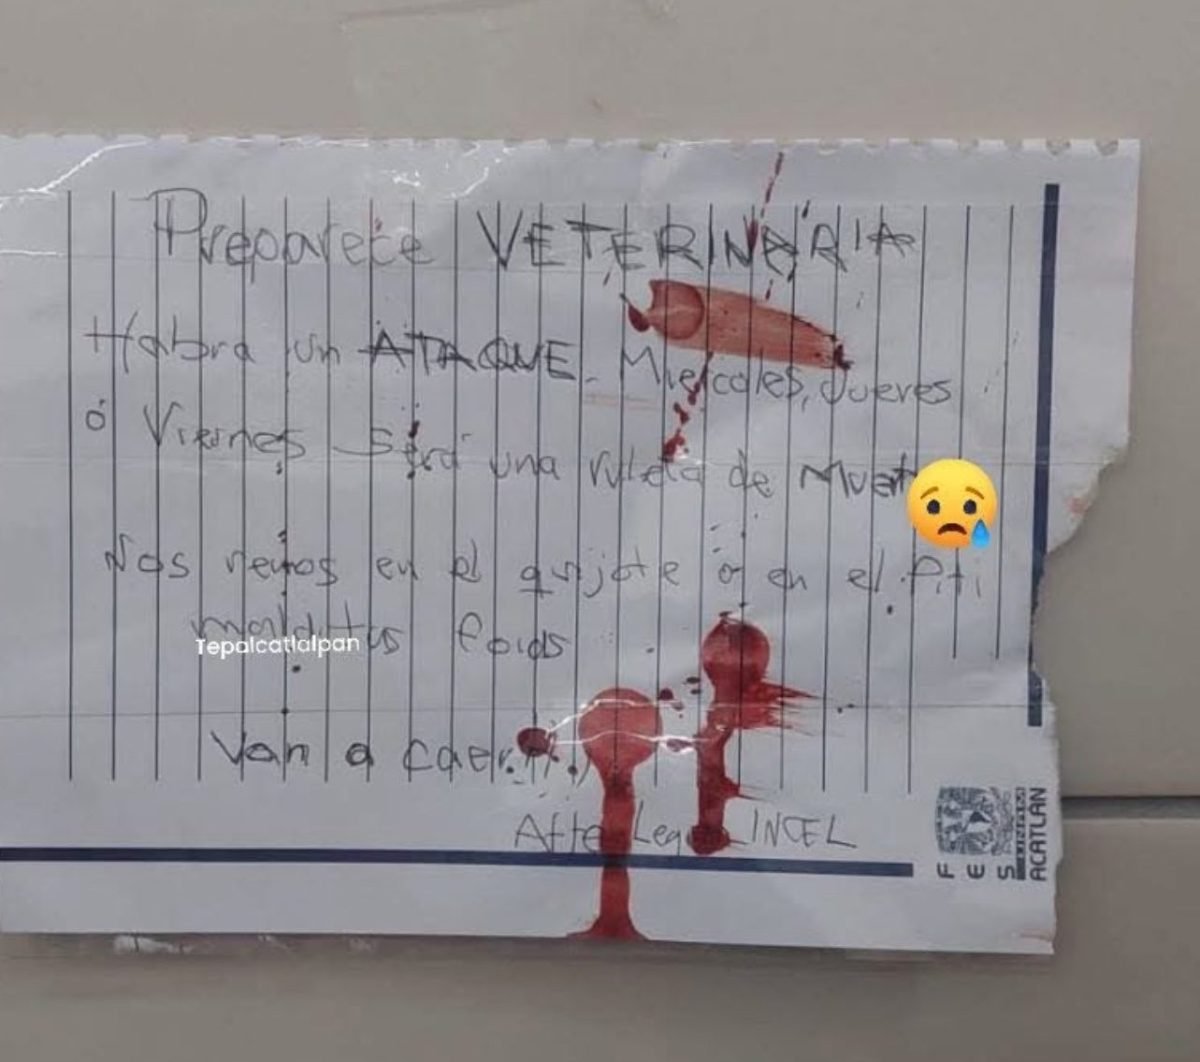 Preparece VETERINARIA
Habra un ATAQUE. Miercoles, Jueves
ó Viernes será una ruleta de
Nos vemos en el quijote o en el Piti
malditas foids
Tepalcatlalpan
Van a caer...
Atte Legión INCEL
FES
ACATLÁN